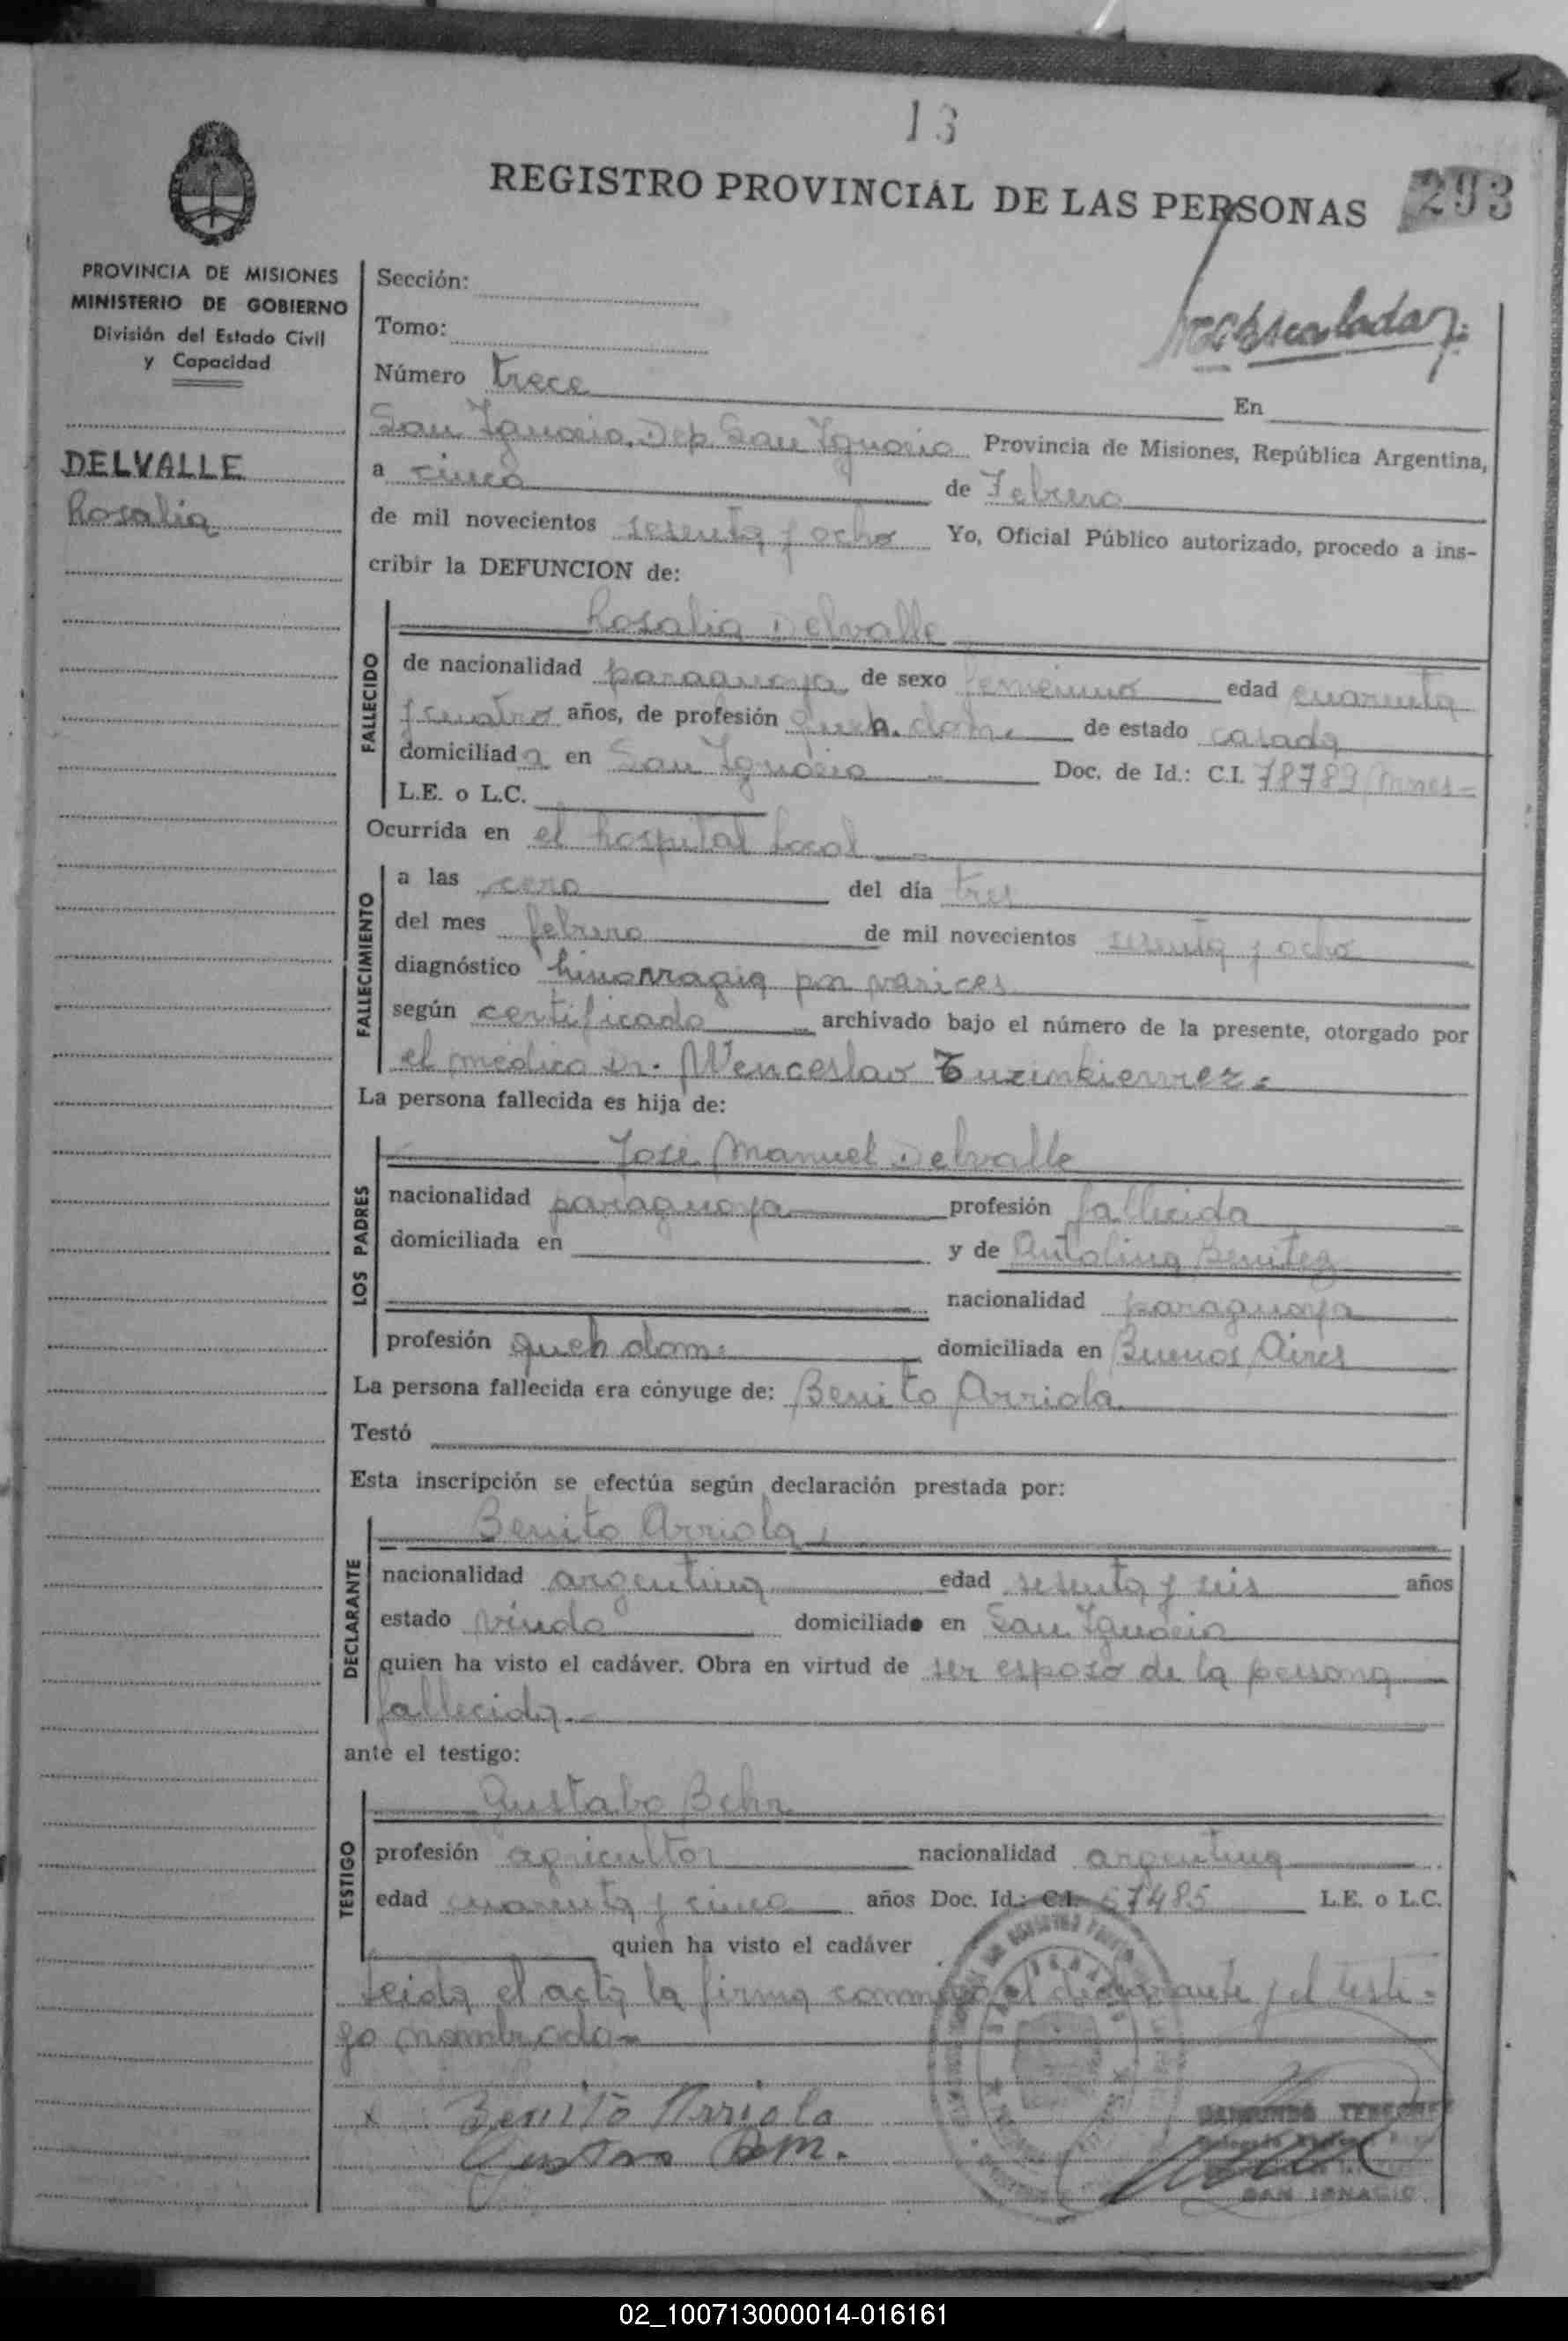 13
REGISTRO PROVINCIAL DE LAS PERSONAS 293
PROVINCIA DE MISIONES
MINISTERIO DE GOBIERNO
División del Estado Civil
y Capacidad
DELVALLE
Rosalia
Sección:
Tomo:
Número trece
En
San Ignacio, Dep. San Ignacio Provincia de Misiones, República Argentina,
a cinco de Febrero
de mil novecientos sesenta y ocho Yo, Oficial Público autorizado, procedo a ins-
cribir la DEFUNCION de:
FALLECIDO
Rosalia Delvalle
de nacionalidad paraguaya de sexo femenino edad cuarenta
y cuatro años, de profesión queh. dom. de estado casada
domiciliada en San Ignacio Doc. de Id.: C.I. 78789 Mnes-
L.E. o L.C.
Ocurrida en el hospital local
FALLECIMIENTO
a las cero del día tres
del mes febrero de mil novecientos sesenta y ocho
diagnóstico himorragia por varices
según certificado archivado bajo el número de la presente, otorgado por
el médico Dr. Wenceslao
La persona fallecida es hija de:
LOS PADRES
José Manuel Delvalle
nacionalidad paraguaya profesión fallecida
domiciliada en y de Antolina Benitez
nacionalidad paraguaya
profesión queh dom. domiciliada en Buenos Aires
La persona fallecida era cónyuge de: Benito Arriola
Testó
Esta inscripción se efectúa según declaración prestada por:
DECLARANTE
Benito Arriola,
nacionalidad argentina edad sesenta y seis años
estado viudo domiciliado en San Ignacio
quien ha visto el cadáver. Obra en virtud de ser esposo de la persona
fallecida.-
ante el testigo:
TESTIGO
Gustabo Behr
profesión agricultor nacionalidad argentina
edad cuarenta y cinco años Doc. Id.: C.I. 57485 L.E. o L.C.
quien ha visto el cadáver
Leida el acta la firma conmigo el declarante y el testi-
go nombrado-
x Benito Arriola
SAN IGNACIO
02_100713000014-016161